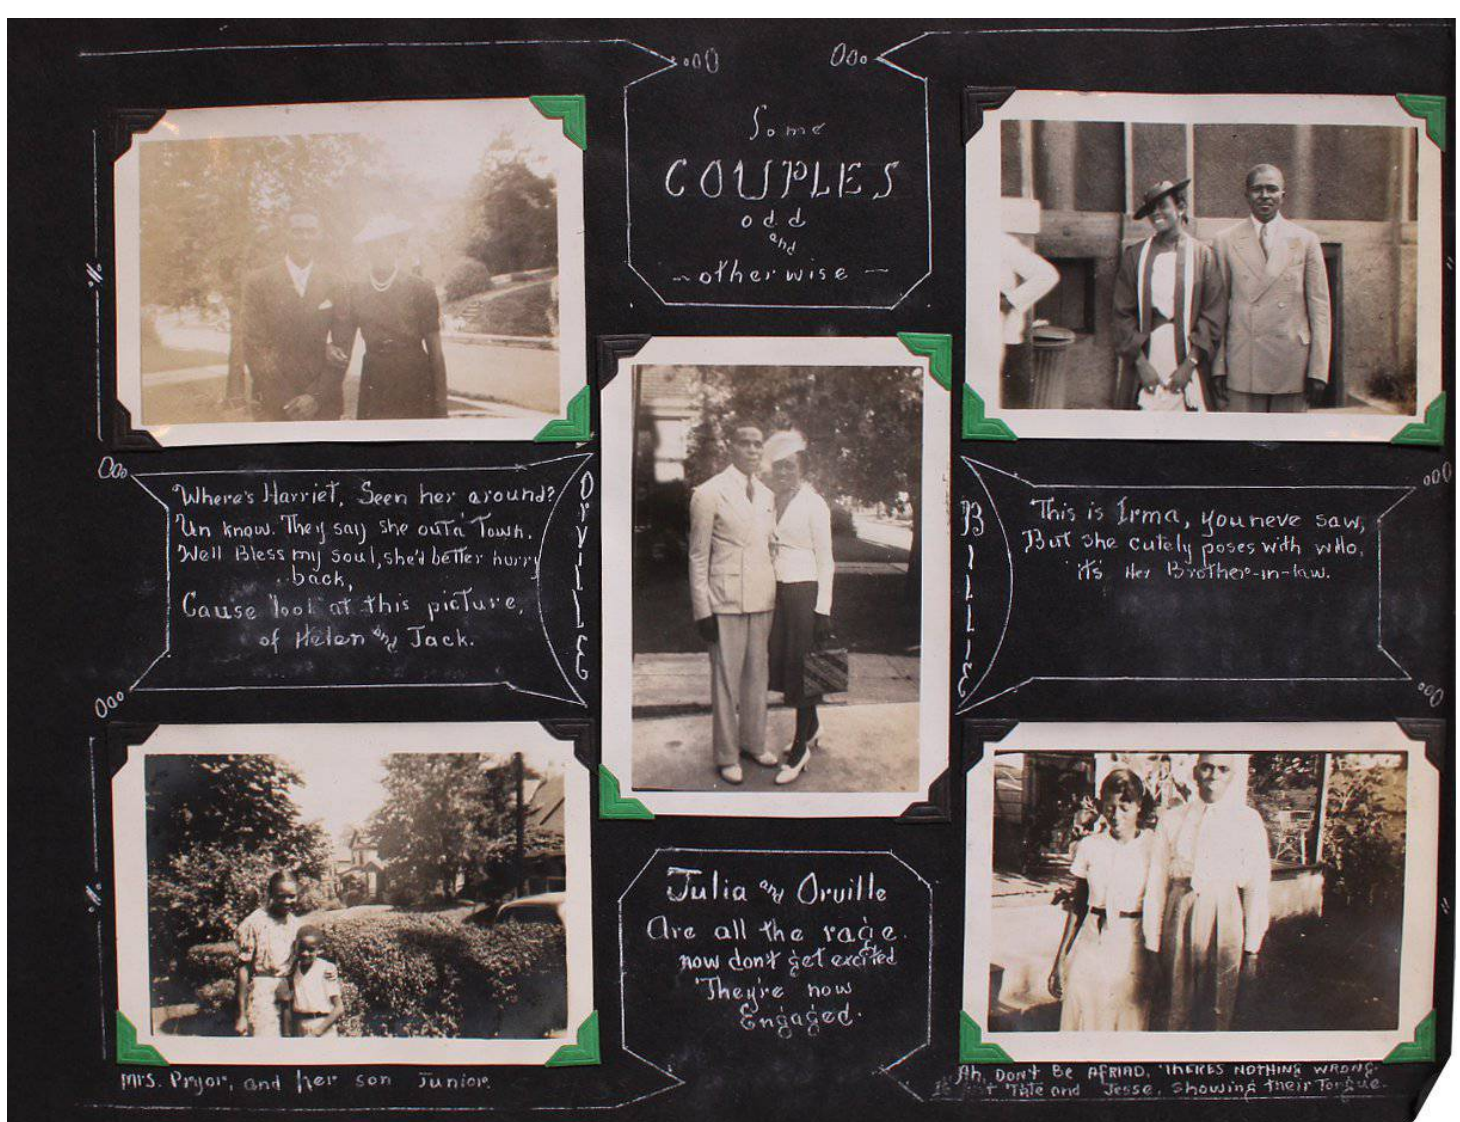 Some
COUPLES
odd
and
- otherwise -
"Where's Harriet, Seen her around?
Un know. They say she outa' Town.
Well Bless my soul, she'd better hurry
back,
Cause look at this picture,
of Helen and Jack.
This is Irma, you neve saw,
But she cutely poses with who,
it's Her Brother-in-law.
Julia and Orville
Are all the rage.
now don't get excited
They're now
Engaged.
Mrs. Pryor, and her son Junior.
Ah, DON'T BE AFRIAD, THERES NOTHING WRONG
Tate and Jesse, Showing their Tongue.